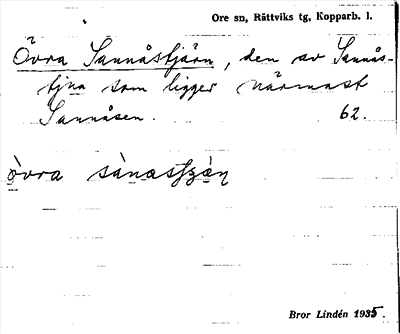 Ore sn, Rättviks tg, Kopparb. l.
Övra Sannåstjärn, den av Sannås-
tjna som ligger närmast
Sannåsen. 62.
òvra sànasʃʒæ̀ɳ
Bror Lindén 1935.